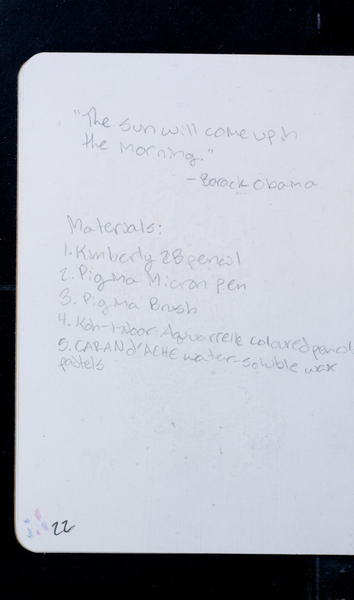 "The sun will come up in
the morning."
-Barack Obama
Materials:
1. Kimberly 2B pencil
2. Pigma Micron pen
3. Pigma Brush
4. Koh-I-Noor Aquarelle coloured pencil
5. CARAN d'ACHE water-soluble wax
pastels
22